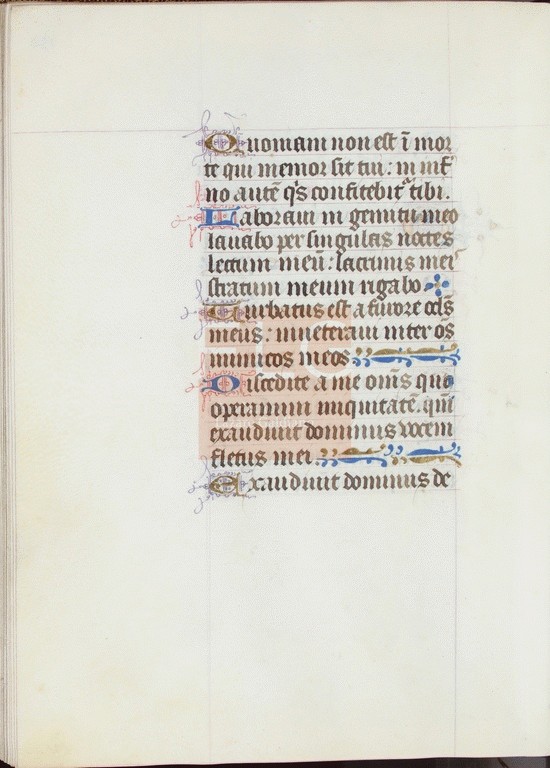 Quoniam non est ī mor
te qui memor sit tui: in inf̄
no autē q̄s confitebit᷑ tibi.
Laboraui in gemitu meo
lauabo per singulas noctes
lectum meū: lacrimis meis
stratum meum rigabo
Turbatus est a furore ocls̄
meus: inueteraui inter os̄
inimicos meos
Discedite a me om̄s qui
operamini iniquitatē. qm̄
exaudiuit dominus vocem
fletus mei
Exaudiuit dominus de